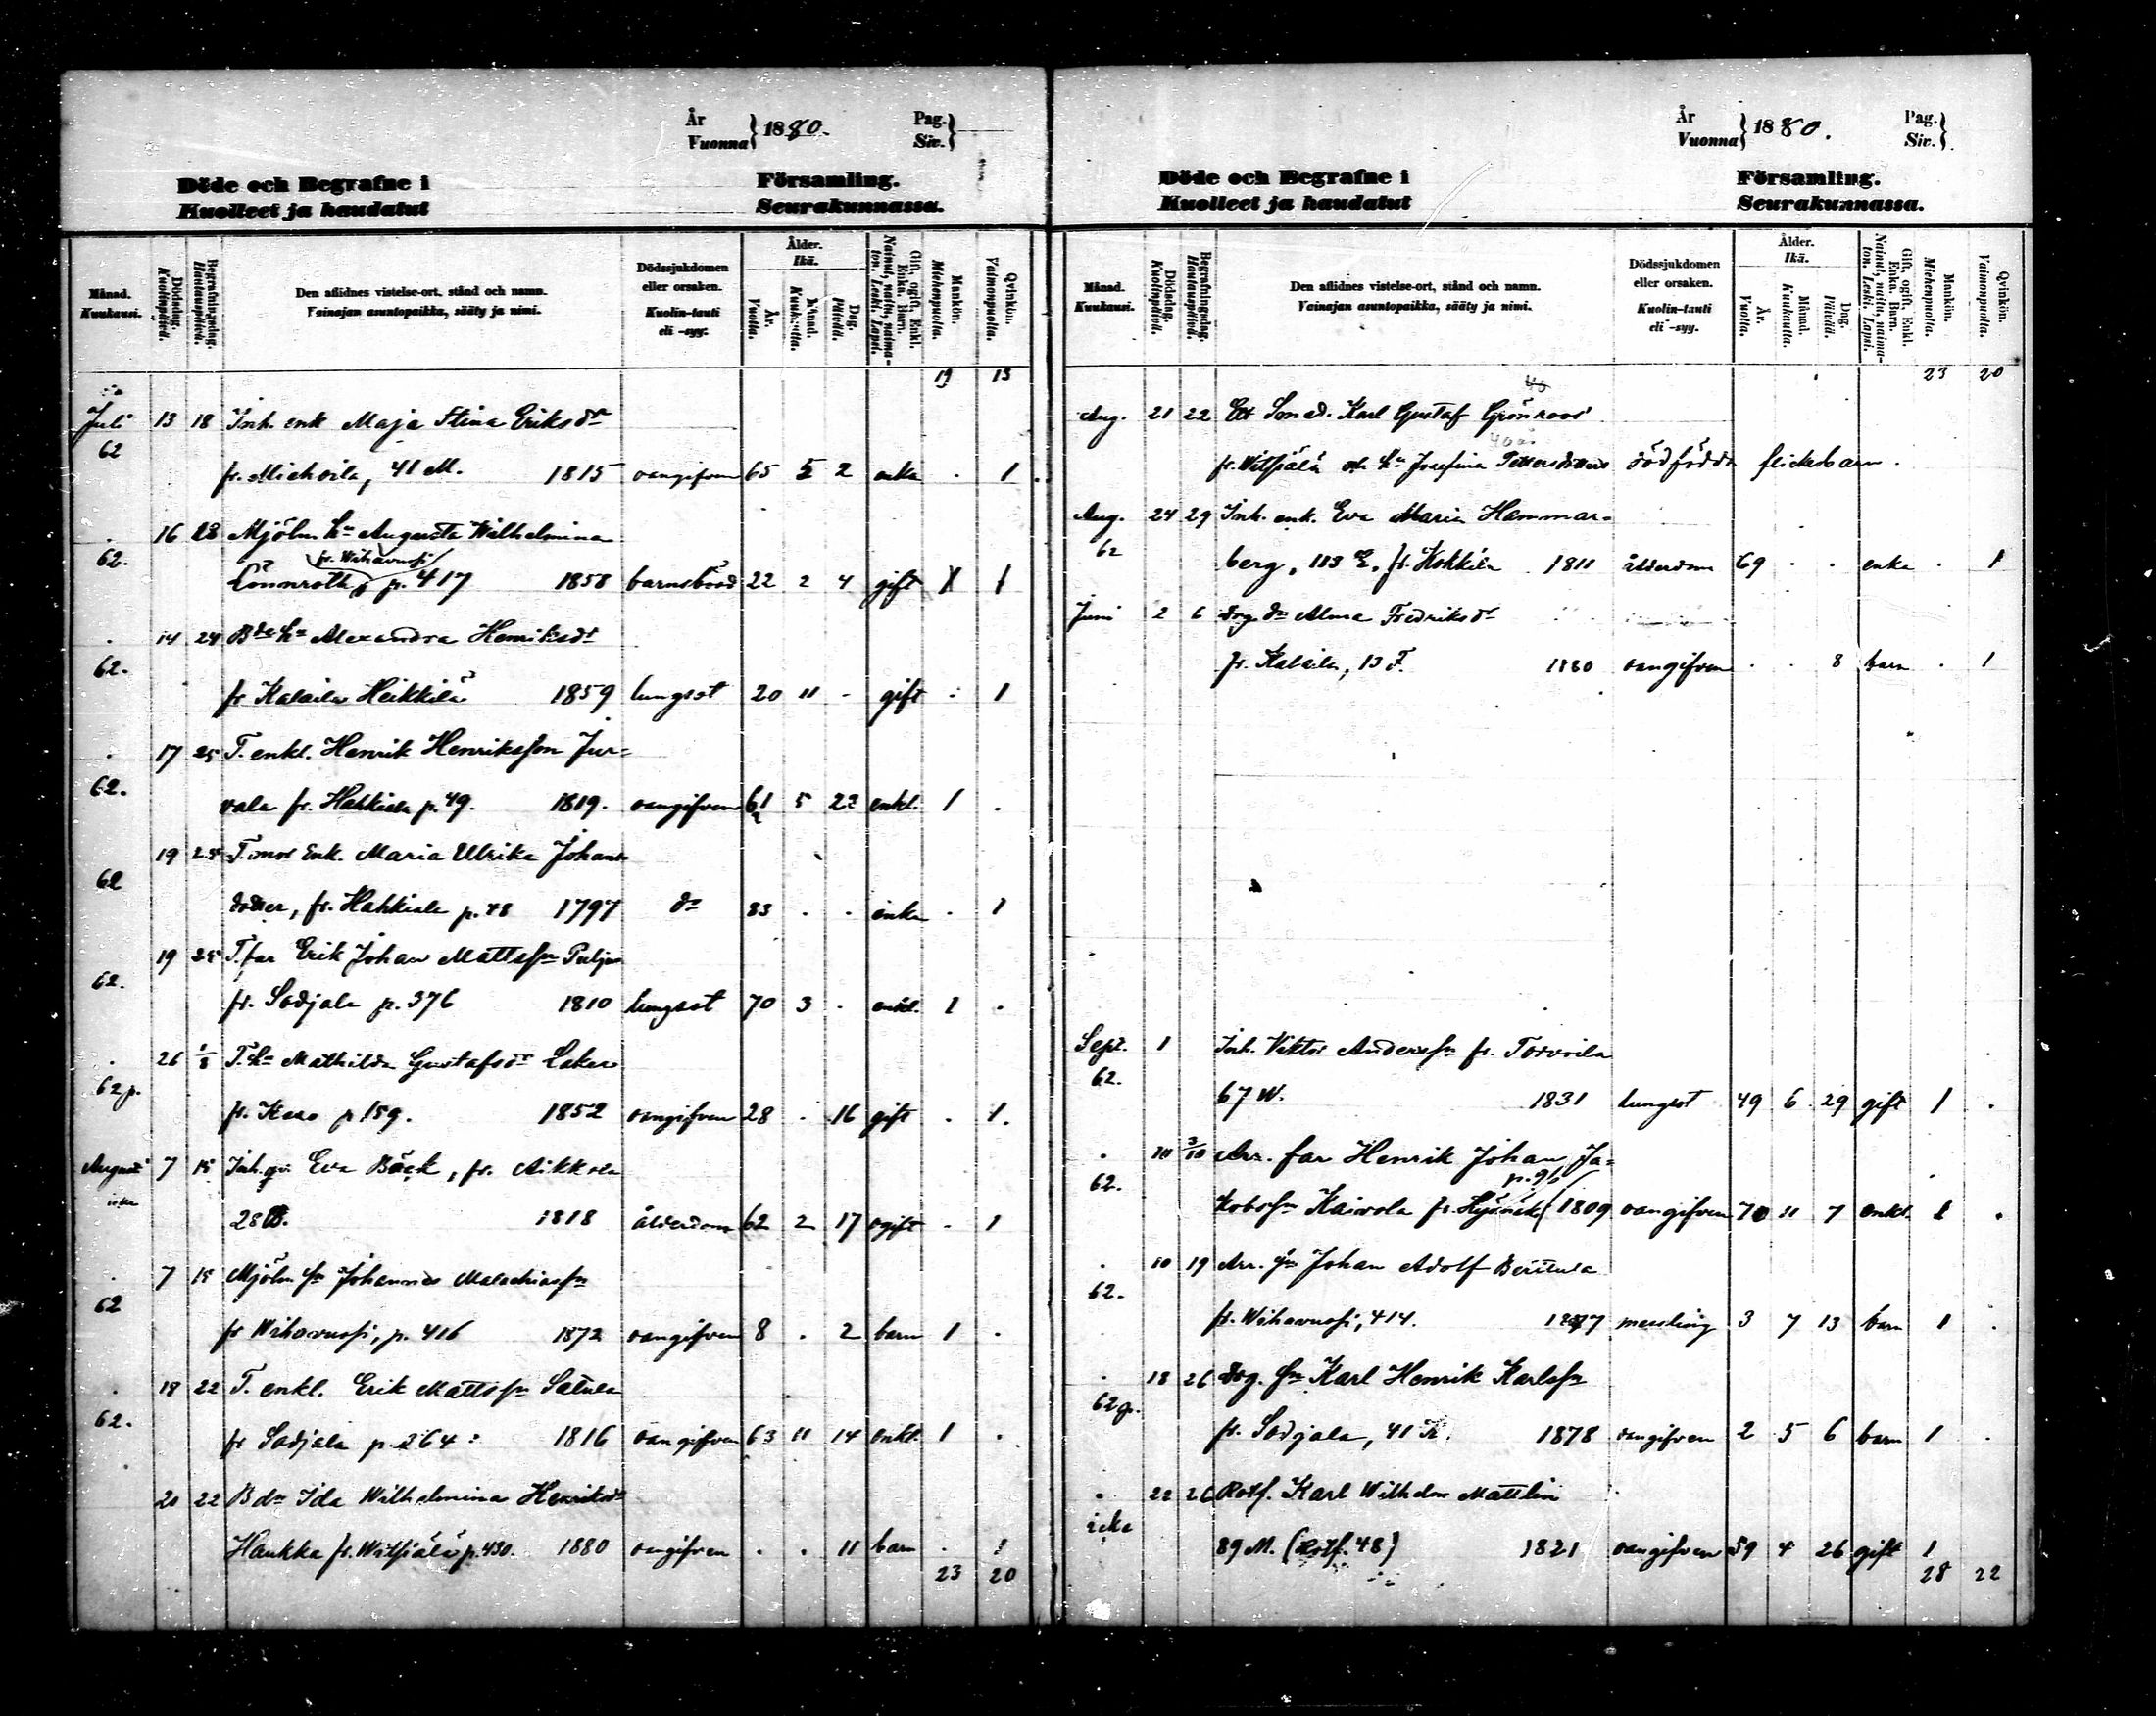 År
Vuonna } 1880.
Pag.
Siv. }
Döde och Begrafne i Församling.
Kuolleet ja haudatut Seurakunnassa.
Månad. Kuukausi.
Dödsdag. Kuolinpäivä.
Begrafningsdag. Hautauspäivä.
Den aflidnes vistelse-ort, stånd och namn.
Vainajan asuntopaikka, sääty ja nimi.
Dödssjukdomen eller orsaken.
Kuolin-tauti eli -syy.
Ålder. Ikä.
År. Vuotta.
Månad. Kuukautta.
Dag. Päivää.
Gift, ogift, Enkl. Enka. Barn.
Nainut, naitu, naima-ton. Leski. Lapsi.
Mankön. Miehenpuolta.
Qvinkön. Vaimonpuolta.
19 13
Juli 13 18 Inh. enk Maja Stina Eriksdr
62 fr. Michoila, 41 M. 1815 oangifven 65 5 2 enka . 1
. 16 18 Mjöln. hu Augusta Wilhelmina
fr. Wihavuosi
62. Lönnroth, p. 417 1858 barnsbörd 22 2 4 gift 1
. 14 24 Bde hu Alexandra Henriksdr
62. fr Kalaila Heikkilä 1859 lungsot 20 11 - gift . 1
. 17 25 T. enkl. Henrik Henriksson Jur-
62. vala fr. Hahkiala p. 49. 1819. oangifven 61 5 22 enkl. 1 .
19 25 T. mor Enk. Maria Ulrika Johans
62 dotter, fr. Hahkiala p. 48 1797 do 83 . . enka . 1
19 25 T. far Erik Johan Mattssn
62. fr. Sodjala p. 376 1810 lungsot 70 3 . enkl. 1 .
. 26 1/8 T. hu Mathilda Gustafsdr
62 p. fr. p 159. 1852 oangifven 28 . 16 gift . 1.
Augusti 7 15 Inh. qv. Eva Bäck, fr.
28 B. 1818 ålderdom 62 2 17 ogift - 1
. 7 15 Mjöln. sn Johannes Malachiassn
62 fr Wihavuosi, p. 416 1872 oangifven 8 . 2 barn 1 .
. 18 22 T. enkl. Erik Mattssn Satula
62. fr Sodjala p. 264 1816 oangifven 63 11 14 enkl. 1 .
20 22 B dr Ida Wilhelmina Henriksdr
Haukka fr. Witsiälä p. 430. 1880 oangifven . . 11 barn . 1
23 20
År
Vuonna } 1880.
Pag.
Siv. }
Döde och Begrafne i Församling.
Kuolleet ja haudatut Seurakunnassa.
Månad. Kuukausi.
Dödsdag. Kuolinpäivä.
Begrafningsdag. Hautauspäivä.
Den aflidnes vistelse-ort, stånd och namn.
Vainajan asuntopaikka, sääty ja nimi.
Dödssjukdomen eller orsaken.
Kuolin-tauti eli -syy.
Ålder. Ikä.
År. Vuotta.
Månad. Kuukautta.
Dag. Päivää.
Gift, ogift, Enkl. Enka. Barn.
Nainut, naitu, naima-ton. Leski. Lapsi.
Mankön. Miehenpuolta.
Qvinkön. Vaimonpuolta.
23 20
Aug. 21 22 Ett Karl Gustaf Grönroos
fr. Witsiälä och hu Josefina Pettersdotters dödfödda flickebarn.
Aug. 24 29 Inh. enk. Eva Maria Hammar-
62 berg, 113 E, fr. Kokkila 1811 ålderdom 69 . . enka . 1
Juni 2 6 drg. dr Alma Fredriksdr
fr. Kalaila, 13 F. 1880 oangifven . . 8 barn . 1
Sept. 1 Inh. Viktor Anderssn fr. Torvoila
62. 67 W. 1831 lungsot 49 6 29 gift 1 .
. 10 3/10 Arr. far Henrik Johan Ja-
p. 91
62. kobssn Kaivola fr. 1809 oangifven 70 11 7 enkl. 1 .
. 10 19 Arr. sn Johan Adolf
62. fr. Wihavuosi, 414. 1877 messling 3 7 13 barn 1 .
. 18 26 drg. sn Karl Henrik Karlssn
62 p. fr. Sodjala, 41 K. 1878 oangifven 2 5 6 barn 1 .
. 22 26 Rotf. Karl Wilhelm Mattlin
icke 89 M. (Rotf. 48) 1821 oangifven 59 4 26 gift 1
28 22